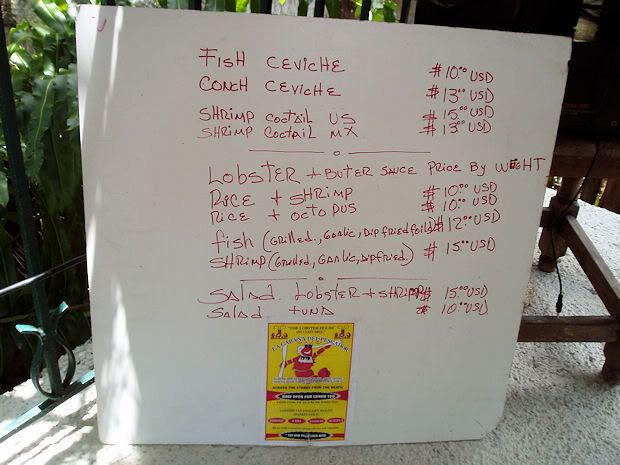 FISH CEVICHE #10.00 USD
CONCH CEVICHE #13.00 USD
SHRIMP COCTAIL US #15.00 USD
SHRIMP COCTAIL MX #13.00 USD
LOBSTER + BUTER SAUCE PRICE BY WEIGHT
RICE + SHRIMP #10.00 USD
RICE + OCTOPUS #10.00 USD
fish (Grilled, Garlic, Dipfried foild) #12.00 USD
SHRIMP (Grilled, Garlic, Dipfried) #15.00 USD
SALAD LOBSTER + SHRIMP# 15.00 USD
SALAD TUNA # 10.00 USD
"THE LOBSTER HOUSE
LA CABANA DEL PESCADOR
ACROSS THE STREET FROM THE BEACH
NOW OPEN FOR LUNCH TOO